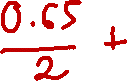 \frac{0.65}{2} +